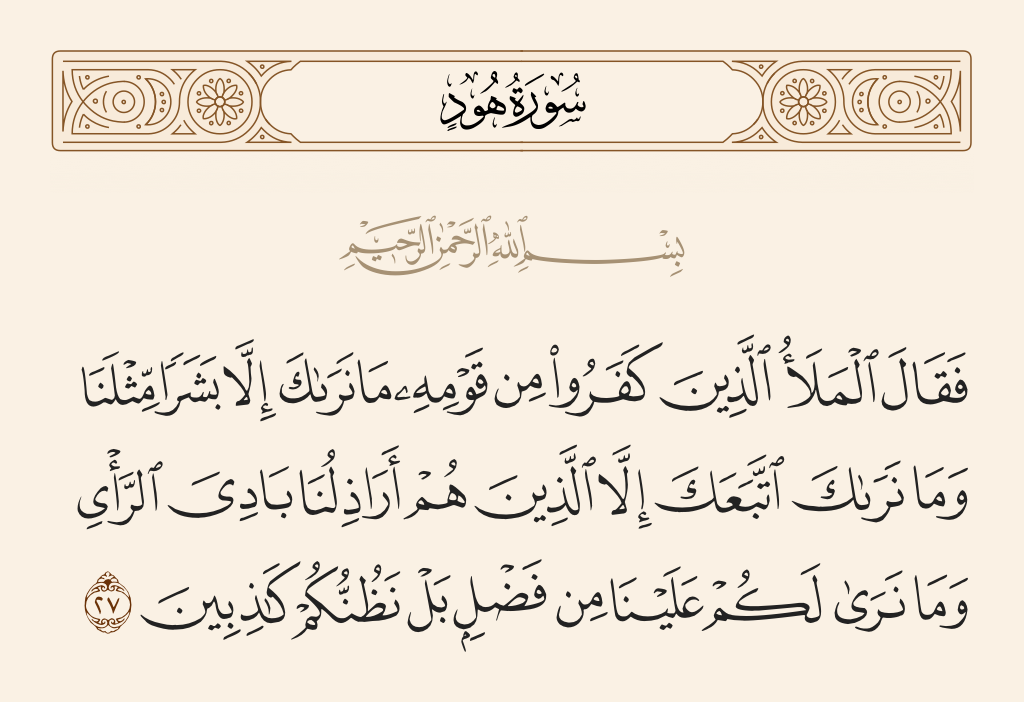 سُورَةُ هُودٍ
بِسْمِ ٱللَّهِ ٱلرَّحْمَٰنِ ٱلرَّحِيمِ
فَقَالَ ٱلْمَلَأُ ٱلَّذِينَ كَفَرُوا۟ مِن قَوْمِهِۦ مَا نَرَىٰكَ إِلَّا بَشَرًا مِّثْلَنَا
وَمَا نَرَىٰكَ ٱتَّبَعَكَ إِلَّا ٱلَّذِينَ هُمْ أَرَاذِلُنَا بَادِىَ ٱلرَّأْىِ
وَمَا نَرَىٰ لَكُمْ عَلَيْنَا مِن فَضْلٍۭ بَلْ نَظُنُّكُمْ كَٰذِبِينَ ٢٧